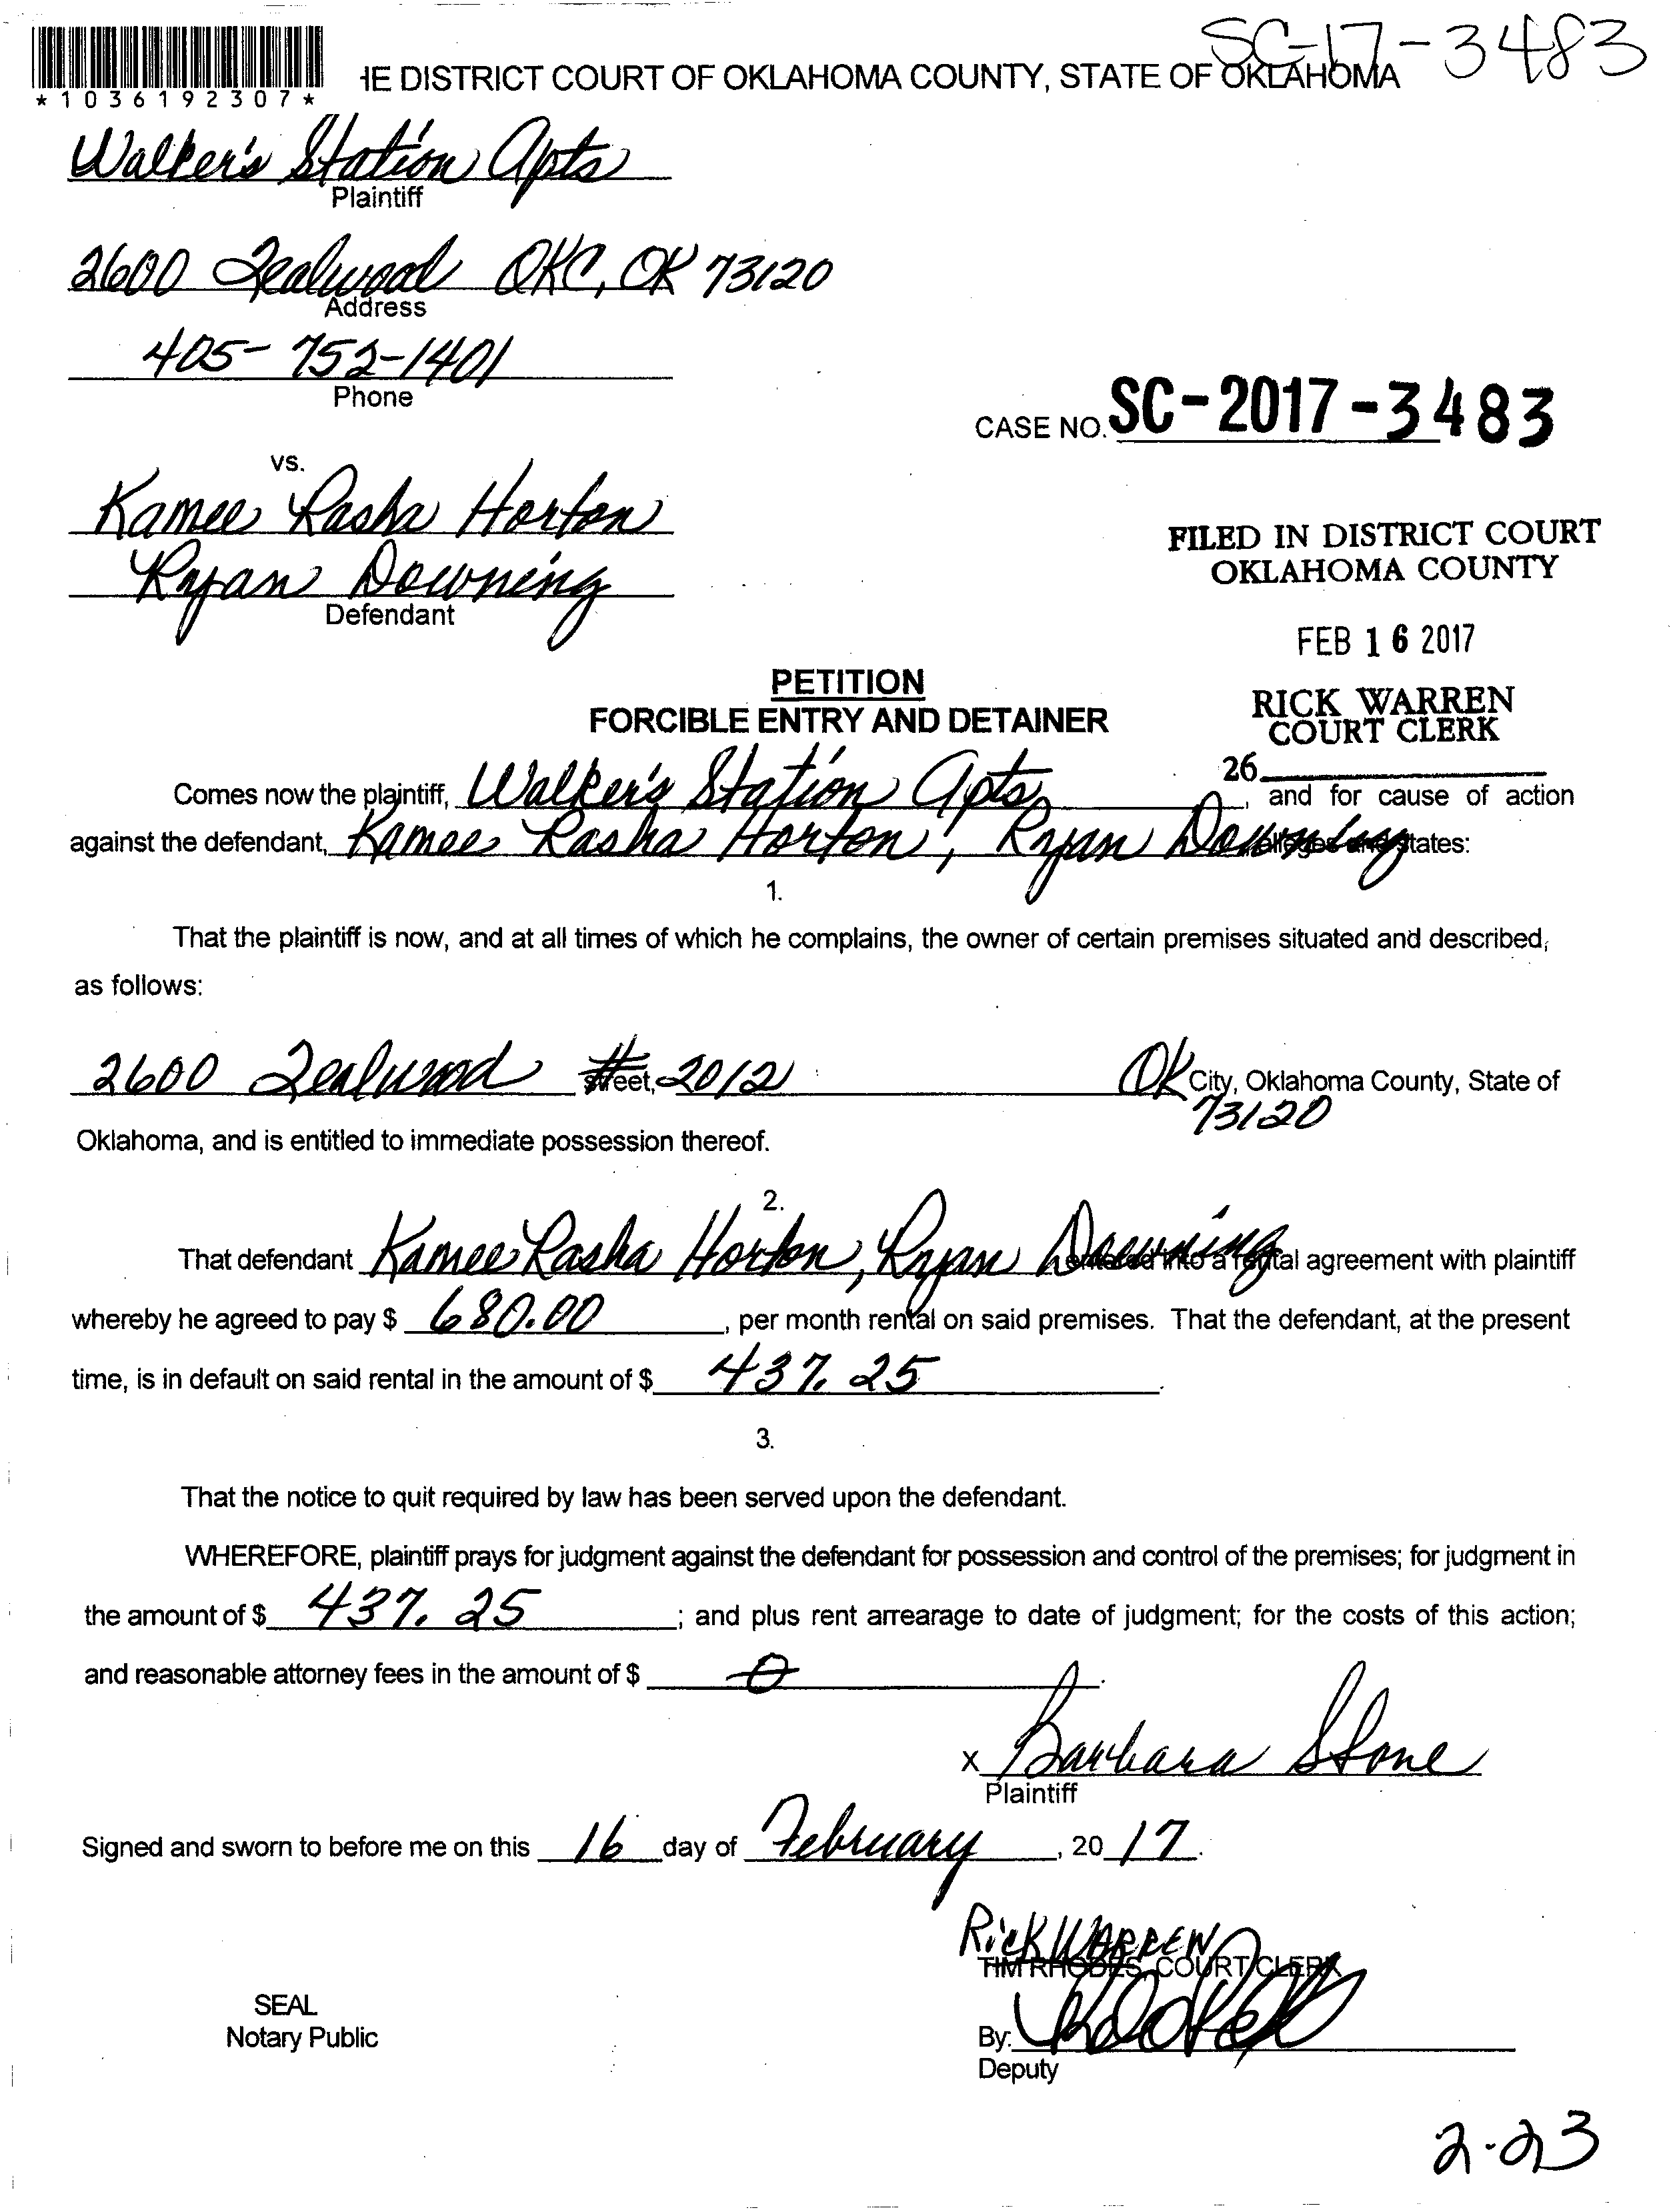 SC-17-3483
*1036192307*
HE DISTRICT COURT OF OKLAHOMA COUNTY, STATE OF OKLAHOMA
Walker's Station Apts
Plaintiff
2600 Tealwood OKC, OK 73120
Address
405-752-1401
Phone
CASE NO. SC-2017-3483
vs.
Kamee Rasha Horton
Ryan Downing
Defendant
FILED IN DISTRICT COURT
OKLAHOMA COUNTY
FEB 16 2017
RICK WARREN
COURT CLERK
26
PETITION
FORCIBLE ENTRY AND DETAINER
Comes now the plaintiff, Walker's Station Apts, and for cause of action
against the defendant, Kamee Rasha Horton, Ryan Downing alleges and states:
1.
That the plaintiff is now, and at all times of which he complains, the owner of certain premises situated and described,
as follows:
2600 Tealwood # street, 2012 OK City, Oklahoma County, State of
73120
Oklahoma, and is entitled to immediate possession thereof.
2.
That defendant Kamee Rasha Horton, Ryan Downing entered into a rental agreement with plaintiff
whereby he agreed to pay $ 680.00, per month rental on said premises. That the defendant, at the present
time, is in default on said rental in the amount of $ 437.25.
3.
That the notice to quit required by law has been served upon the defendant.
WHEREFORE, plaintiff prays for judgment against the defendant for possession and control of the premises; for judgment in
the amount of $ 437.25; and plus rent arrearage to date of judgment; for the costs of this action;
and reasonable attorney fees in the amount of $ 0.
x Barbara Stone
Plaintiff
Signed and sworn to before me on this 16 day of February, 20 17.
Rick WARREN
TIM RHODES, COURT CLERK
SEAL
Notary Public
By:
Deputy
2-23